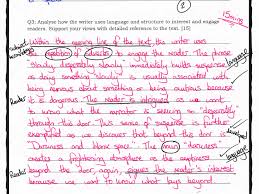 2
15mins
Q3: Analyse how the writer uses language and structure to interest and engage
readers. Support your views with detailed reference to the text. [15]
Within the opening line of the text, the writer uses
repetition of adverbs to engage the reader. The phrase
"slowly, desperately slowly" immediately builds suspense
as doing something slowly is usually associated with
being nervous about something or being cautious because
it is dangerous. The reader is intrigued as we want
to know what the narrator is seeing or
through this. This sense of suspense is further
exemplified as we discover that beyond the door is
"Darkness and blank space". The noun "darkness"
creates a frightening atmosphere as the emptiness
beyond the door, again, piques the reader's interest
because we want to know what lays beyond
Subject
terms
Reader
Reader
language
language